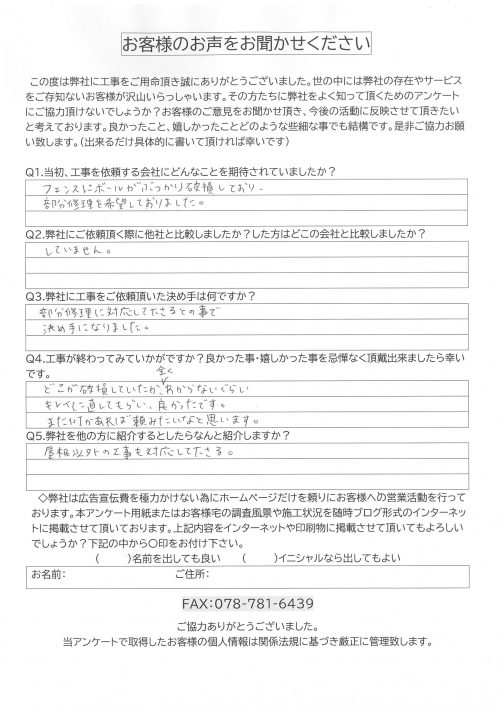 お客様のお声をお聞かせください
この度は弊社に工事をご用命頂き誠にありがとうございました。世の中には弊社の存在やサービス
をご存知ないお客様が沢山いらっしゃいます。その方たちに弊社をよく知って頂くためのアンケート
にご協力頂けないでしょうか？お客様のご意見をお聞かせ頂き、今後の活動に反映させて頂きたい
と考えております。良かったこと、嬉しかったことどのような些細な事でも結構です。是非ご協力お願
い致します。(出来るだけ具体的に書いて頂ければ幸いです)
Q1.当初、工事を依頼する会社にどんなことを期待されていましたか？
フェンスにボールがぶつかり破損しており、
部分修理を希望しておりました。
Q2.弊社にご依頼頂く際に他社と比較しましたか？した方はどこの会社と比較しましたか？
していません。
Q3.弊社に工事をご依頼頂いた決め手は何ですか？
部分修理に対応して下さるとの事で
決め手になりました。
Q4.工事が終わってみていかがですか？良かった事・嬉しかった事を忌憚なく頂戴出来ましたら幸い
です。
どこが破損していたか、全くわからないぐらい
キレイに直してもらい、良かったです。
また何かあれば頼みたいなと思います。
Q5.弊社を他の方に紹介するとしたらなんと紹介しますか？
屋根以外の工事も対応して下さる。
◇弊社は広告宣伝費を極力かけない為にホームページだけを頼りにお客様への営業活動を行って
おります。本アンケート用紙またはお客様宅の調査風景や施工状況を随時ブログ形式のインターネッ
トに掲載させて頂いております。上記内容をインターネットや印刷物に掲載させて頂いてもよろしい
でしょうか？下記の中から〇印をお付け下さい。
(　　)名前を出しても良い　(　　)イニシャルなら出してもよい
お名前:　ご住所:
FAX:078-781-6439
ご協力ありがとうございました。
当アンケートで取得したお客様の個人情報は関係法規に基づき厳正に管理致します。